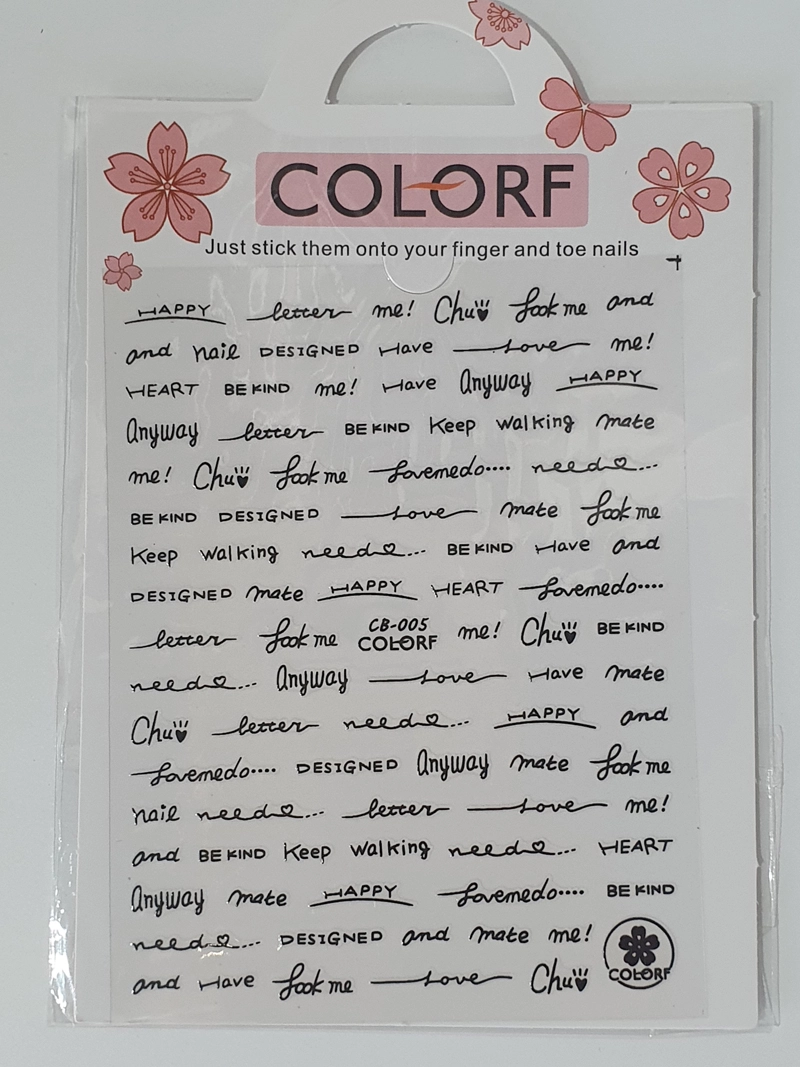 COLORF
Just stick them onto your finger and toe nails
HAPPY letter me! Chu look me and
and nail DESIGNED Have Love me!
HEART BE KIND me! Have Anyway HAPPY
Anyway letter BE KIND Keep walking mate
me! Chu look me Lovemedo.... need...
BE KIND DESIGNED Love mate look me
Keep walking need... BE KIND Have and
DESIGNED mate HAPPY HEART Lovemedo....
letter look me CB-005 COLORF me! Chu BE KIND
need... Anyway Love Have mate
Chu letter need... HAPPY and
Lovemedo.... DESIGNED Anyway mate look me
nail need... letter Love me!
and BE KIND Keep walking need... HEART
Anyway mate HAPPY Lovemedo.... BE KIND
need... DESIGNED and mate me!
COLORF
and Have look me Love Chu